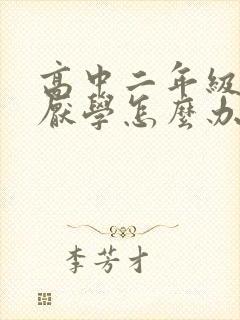 高中二年級
厭學怎麼办
李芳才